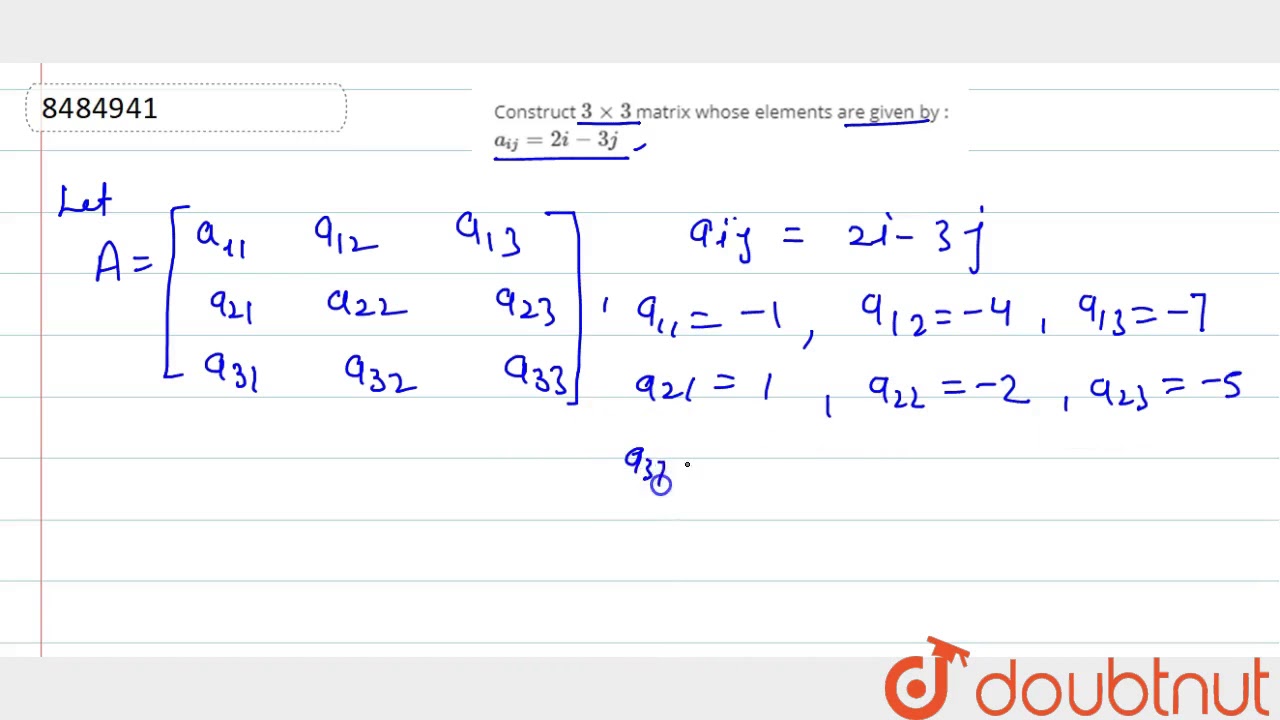 8484941
Construct 3 × 3 matrix whose elements are given by :
a_{ij} = 2i − 3j
Let
A = [ a_{11} a_{12} a_{13}
a_{21} a_{22} a_{23}
a_{31} a_{32} a_{33} ] ,
a_{ij} = 2i - 3j
a_{11} = -1 , a_{12} = -4 , a_{13} = -7
a_{21} = 1 , a_{22} = -2 , a_{23} = -5
a_{31}
doubtnut